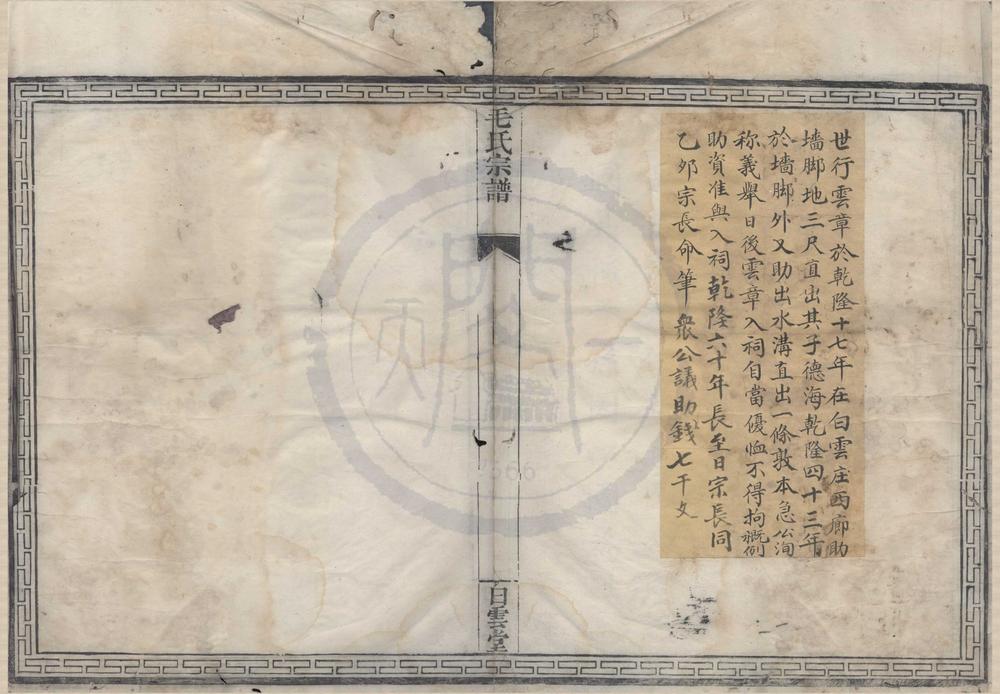 世行雲章於乾隆十七年在白雲庄西廊助
墻脚地三尺直出其子德海乾隆四十三年
於墻脚外又助出水溝直出一條敦本急公洵
称義舉日後雲章入祠自當優恤不得拘概例
助資准與入祠乾隆六十年長至日宗長同
乙夘宗長命筆 衆公議助錢七千文
毛氏宗譜
白雲堂